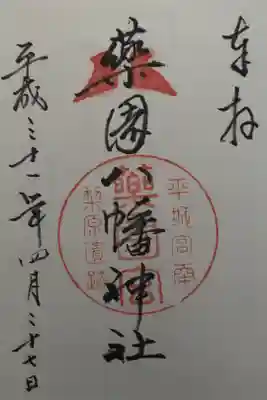 奉拝
薬園八幡神社
平城宮南
藥園宮
梨原遺跡
平成三十一年四月二十七日